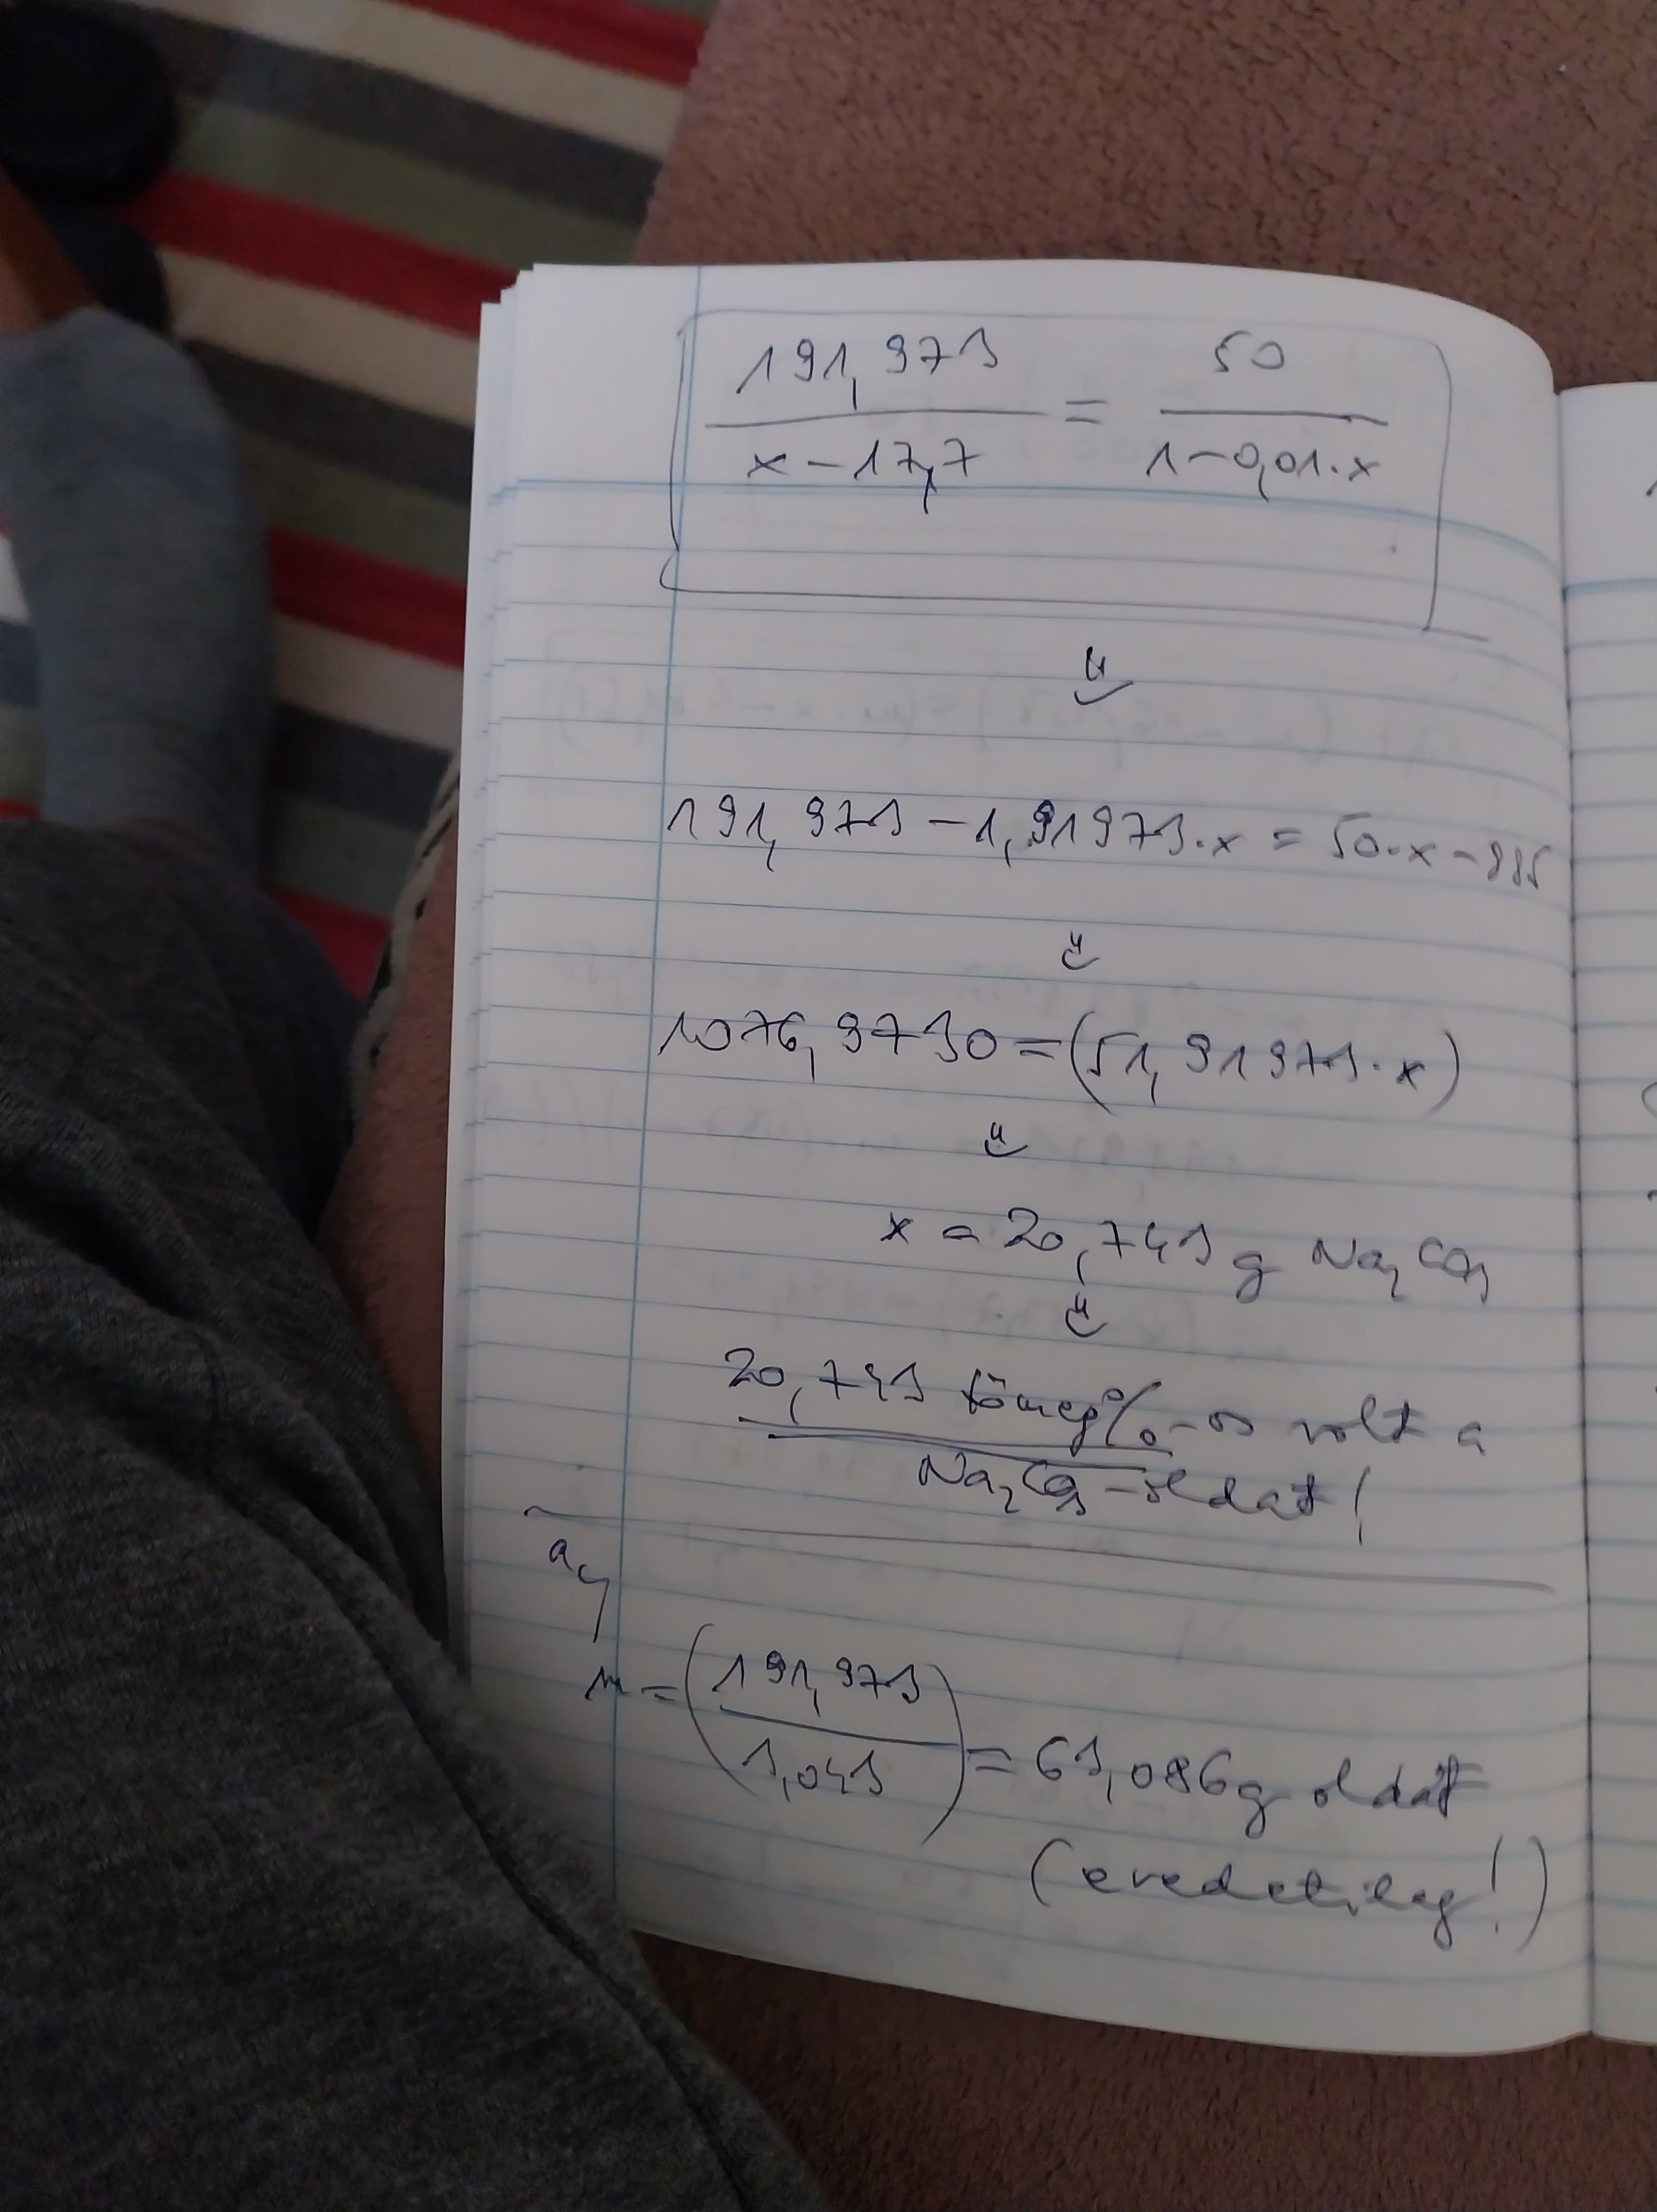 191,973 / x - 17,7 = 50 / 1 - 0,01·x
191,973 - 1,91973·x = 50·x - 885
1076,9730 = (51,91973·x)
x = 20,743 g Na₂CO₃
20,743 tömeg%-os volt a
Na₂CO₃-oldat!
a,
m = (191,973 / 3,043) = 63,086 g oldat
(eredetileg!)